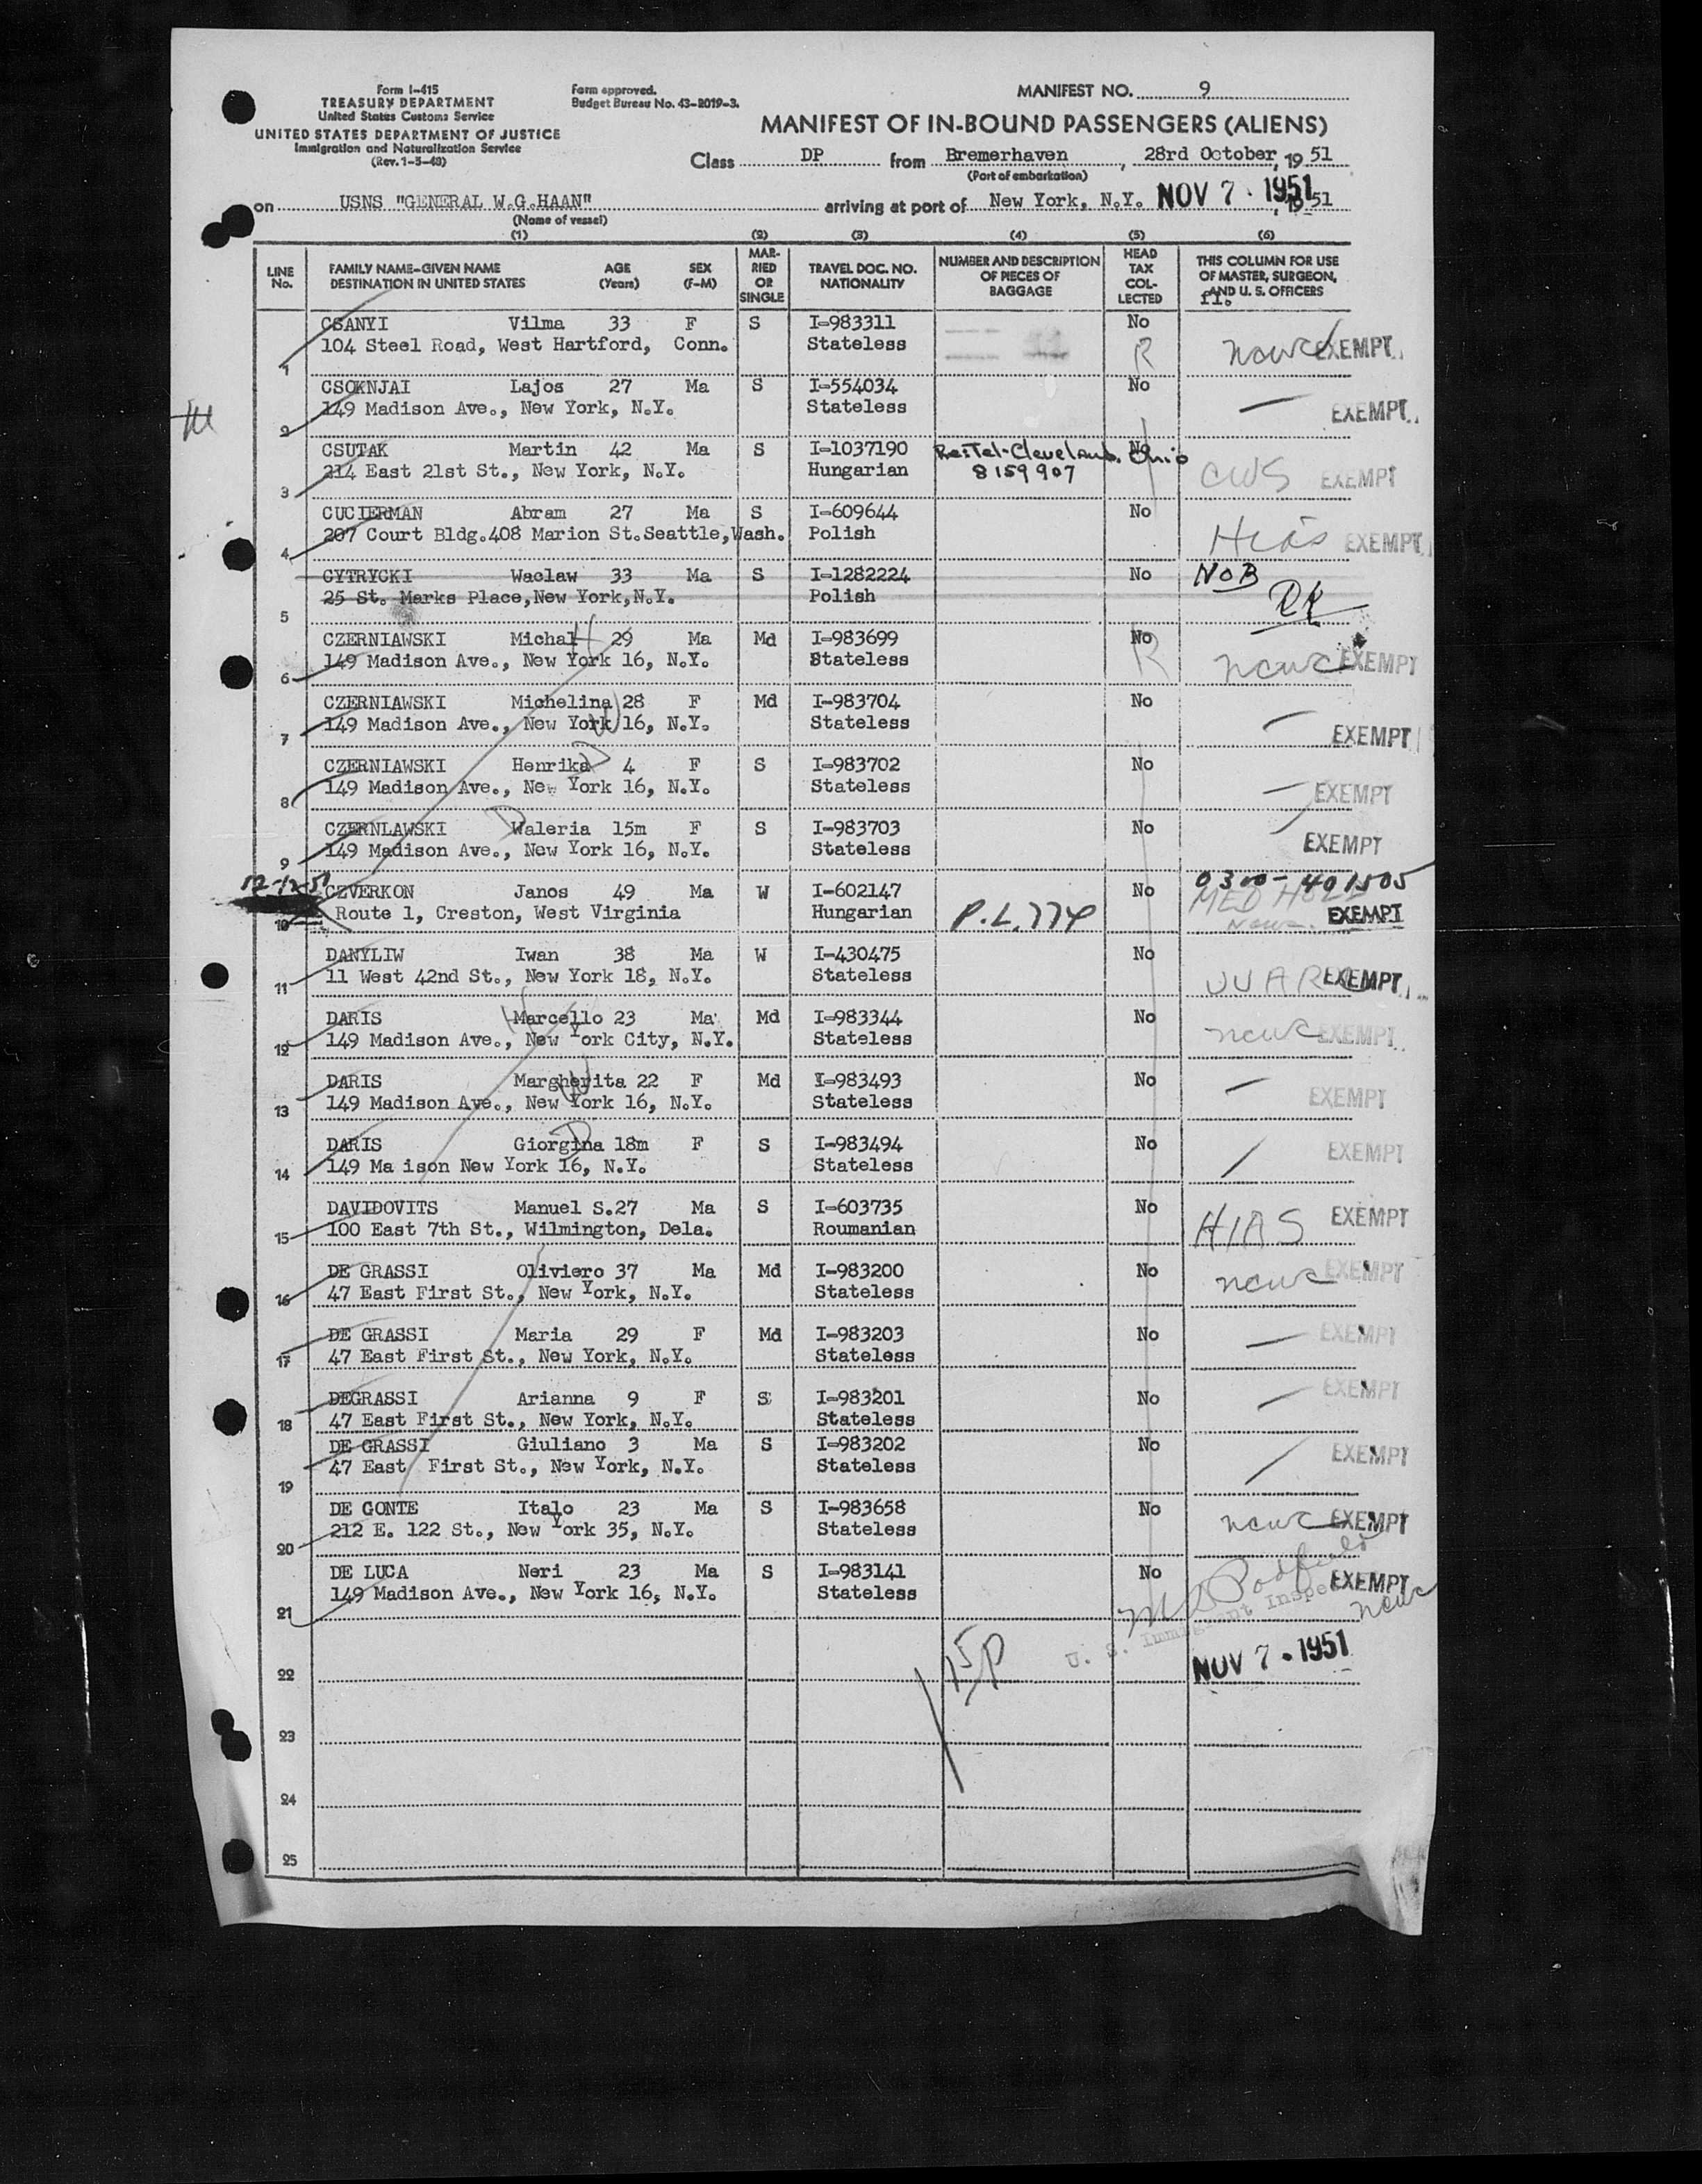 Form I-415
TREASURY DEPARTMENT
United States Customs Service
UNITED STATES DEPARTMENT OF JUSTICE
Immigration and Naturalization Service
(Rev. 1-3-48)
Form approved.
Budget Bureau No. 43-R019-3.
MANIFEST NO. 9
MANIFEST OF IN-BOUND PASSENGERS (ALIENS)
Class DP from Bremerhaven, 28rd October, 19 51
(Port of embarkation)
on USNS "GENERAL W.G.HAAN" arriving at port of New York, N.Y. NOV 7 - 1951, 1951
(Name of vessel)
(1) (2) (3) (4) (5) (6)
LINE No. FAMILY NAME-GIVEN NAME DESTINATION IN UNITED STATES AGE (Years) SEX (F-M) MARRIED OR SINGLE TRAVEL DOC. NO. NATIONALITY NUMBER AND DESCRIPTION OF PIECES OF BAGGAGE HEAD TAX COLLECTED THIS COLUMN FOR USE OF MASTER, SURGEON, AND U. S. OFFICERS
CSANYI Vilma 33 F S I-983311 No
1 104 Steel Road, West Hartford, Conn. Stateless R ncwc EXEMPT
CSOKNJAI Lajos 27 Ma S I-554034 No
2 149 Madison Ave., New York, N.Y. Stateless — EXEMPT
CSUTAK Martin 42 Ma S I-1037190 Reitel-Cleveland. Ohio No
3 214 East 21st St., New York, N.Y. Hungarian 8159907 CWS EXEMPT
CUCIERMAN Abram 27 Ma S I-609644 No
4 207 Court Bldg.408 Marion St.Seattle,Wash. Polish Hias EXEMPT
CYTRYCKI Waclaw 33 Ma S I-1282224 No NOB
5 25 St. Marks Place,New York,N.Y. Polish RK
CZERNIAWSKI Michal H 29 Ma Md I-983699 No
6 149 Madison Ave., New York 16, N.Y. Stateless R ncwc EXEMPT
CZERNIAWSKI Michelina 28 F Md I-983704 No
7 149 Madison Ave., New York W 16, N.Y. Stateless — EXEMPT
CZERNIAWSKI Henrika D 4 F S I-983702 No
8 149 Madison Ave., New York 16, N.Y. Stateless — EXEMPT
CZERNLAWSKI D Waleria 15m F S I-983703 No
9 149 Madison Ave., New York 16, N.Y. Stateless EXEMPT
12-12-51 CZVERKON Janos 49 Ma W I-602147 No 0300-401505
10 Route 1, Creston, West Virginia Hungarian P.L.774 MED HOLD ncwc EXEMPT
DANYLIW Iwan 38 Ma W I-430475 No
11 11 West 42nd St., New York 18, N.Y. Stateless UUARC EXEMPT
DARIS H Marcello 23 Ma Md I-983344 No
12 149 Madison Ave., New York City, N.Y. Stateless ncwc EXEMPT
DARIS Margherita 22 F Md I-983493 No
13 149 Madison Ave., New W York 16, N.Y. Stateless — EXEMPT
DARIS Giorgina D 18m F S I-983494 No
14 149 Ma ison New York 16, N.Y. Stateless EXEMPT
DAVIDOVITS Manuel S.27 Ma S I-603735 No
15 100 East 7th St., Wilmington, Dela. Roumanian HIAS EXEMPT
DE GRASSI Oliviero 37 Ma Md I-983200 No
16 47 East First St., New York, N.Y. Stateless ncwc EXEMPT
DE GRASSI Maria 29 F Md I-983203 No
17 47 East First St., New York, N.Y. Stateless — EXEMPT
DEGRASSI Arianna 9 F S I-983201 No
18 47 East First St., New York, N.Y. Stateless — EXEMPT
DE GRASSI Giuliano 3 Ma S I-983202 No
19 47 East First St., New York, N.Y. Stateless EXEMPT
DE GONTE Italo 23 Ma S I-983658 No
20 212 E. 122 St., New York 35, N.Y. Stateless ncwc EXEMPT
DE LUCA Neri 23 Ma S I-983141 No
21 149 Madison Ave., New York 16, N.Y. Stateless EXEMPT ncwc
U. S. Immigrant Inspector
22 15p NOV 7 - 1951
23
24
25